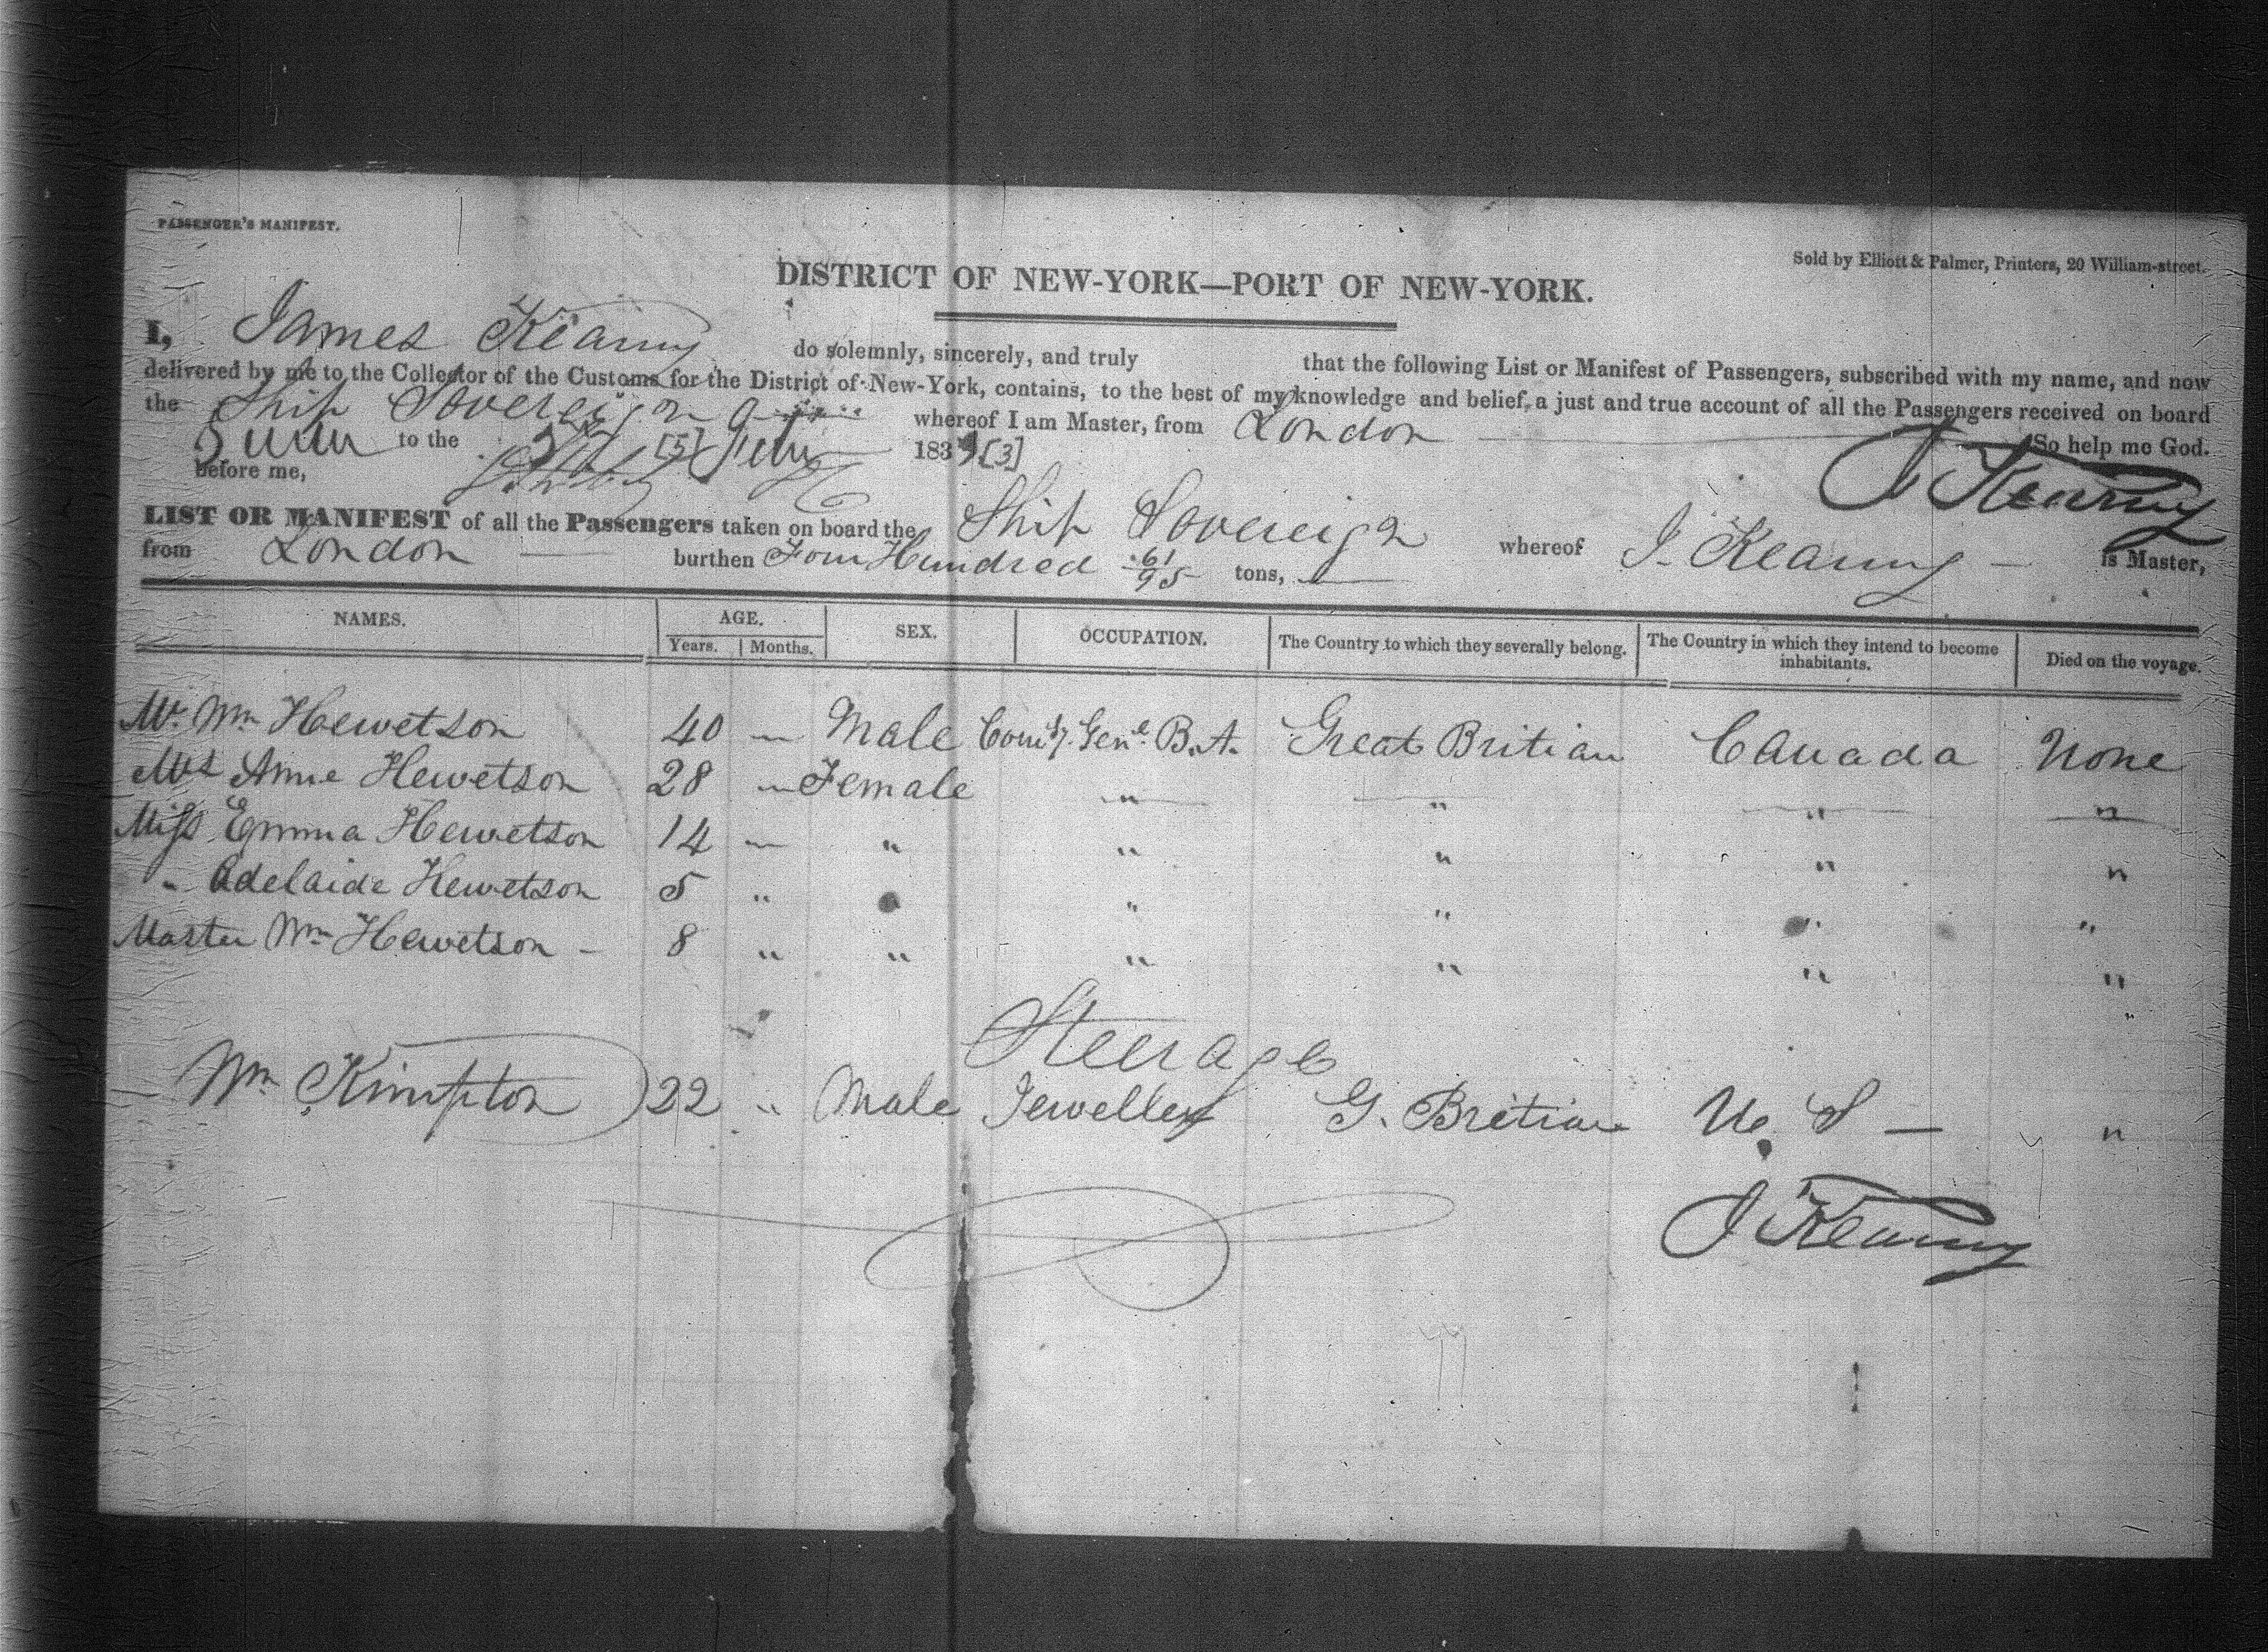 PASSENGER'S MANIFEST.
Sold by Elliott & Palmer, Printers, 20 William-street.
DISTRICT OF NEW-YORK—PORT OF NEW-YORK.
I, James Kearny do solemnly, sincerely, and truly that the following List or Manifest of Passengers, subscribed with my name, and now
delivered by me to the Collector of the Customs for the District of New-York, contains, to the best of my knowledge and belief, a just and true account of all the Passengers received on board
the Ship Sovereign whereof I am Master, from London
So help me God.
Sworn to the 5 [5] July 1833 [3]
before me,
J Kearny
LIST OR MANIFEST of all the Passengers taken on board the Ship Sovereign whereof J. Kearny is Master,
from London burthen Four Hundred 61/95 tons,
NAMES. AGE. SEX. OCCUPATION. The Country to which they severally belong. The Country in which they intend to become inhabitants. Died on the voyage.
Years. Months.
Mr. Wm Hewetson 40 " Male Comy. Genl. B.A. Great Britian Canada None
Mrs Anne Hewetson 28 " Female " " " "
Miss Emma Hewetson 14 " " " " " "
" Adelaide Hewetson 5 " " " " "
Master Wm Hewetson - 8 " " " " " "
Steerage
Wm Kimpton 22 " Male Jeweller G. Britian U. S — "
J Kearny